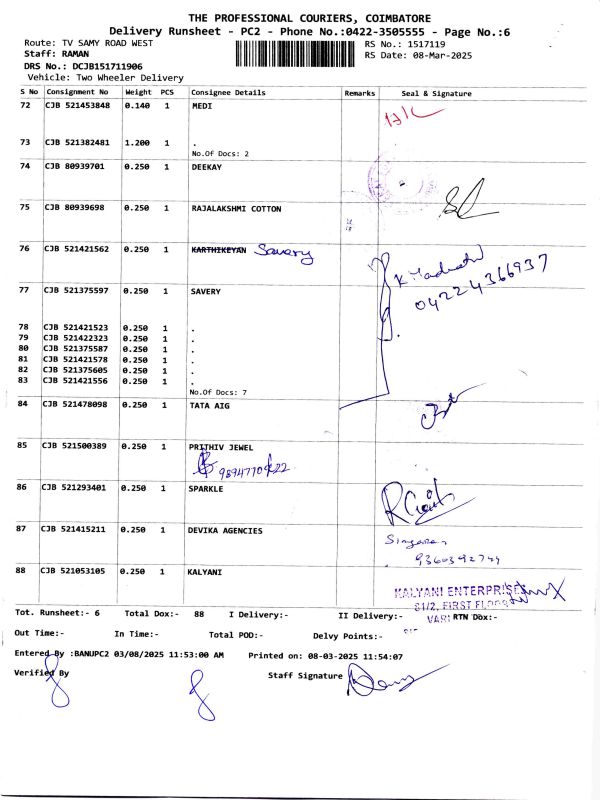 THE PROFESSIONAL COURIERS, COIMBATORE
Delivery Runsheet - PC2 - Phone No.:0422-3505555 - Page No.:6
Route: TV SAMY ROAD WEST
RS No.: 1517119
Staff: RAMAN
RS Date: 08-Mar-2025
DRS No.: DCJB151711906
Vehicle: Two Wheeler Delivery
S No Consignment No Weight PCS Consignee Details Remarks Seal & Signature
72 CJB 521453848 0.140 1 MEDI
73 CJB 521382481 1.200 1 .
No.Of Docs: 2
74 CJB 80939701 0.250 1 DEEKAY
75 CJB 80939698 0.250 1 RAJALAKSHMI COTTON
76 CJB 521421562 0.250 1 KARTHIKEYAN Savery
77 CJB 521375597 0.250 1 SAVERY
04224366937
78 CJB 521421523 0.250 1 .
79 CJB 521422323 0.250 1 .
80 CJB 521375587 0.250 1 .
81 CJB 521421578 0.250 1 .
82 CJB 521375605 0.250 1 .
83 CJB 521421556 0.250 1 .
No.Of Docs: 7
84 CJB 521478098 0.250 1 TATA AIG
85 CJB 521500389 0.250 1 PRITHIV JEWEL
86 CJB 521293401 0.250 1 SPARKLE
87 CJB 521415211 0.250 1 DEVIKA AGENCIES
88 CJB 521053105 0.250 1 KALYANI
KALYANI ENTERPRISES
81/2, FIRST FLOOR
Tot. Runsheet:- 6 Total Dox:- 88 I Delivery:- II Delivery:- RTN Dox:-
Out Time:- In Time:- Total POD:- Delvy Points:-
Entered By :BANUPC2 03/08/2025 11:53:00 AM Printed on: 08-03-2025 11:54:07
Verified By Staff Signature